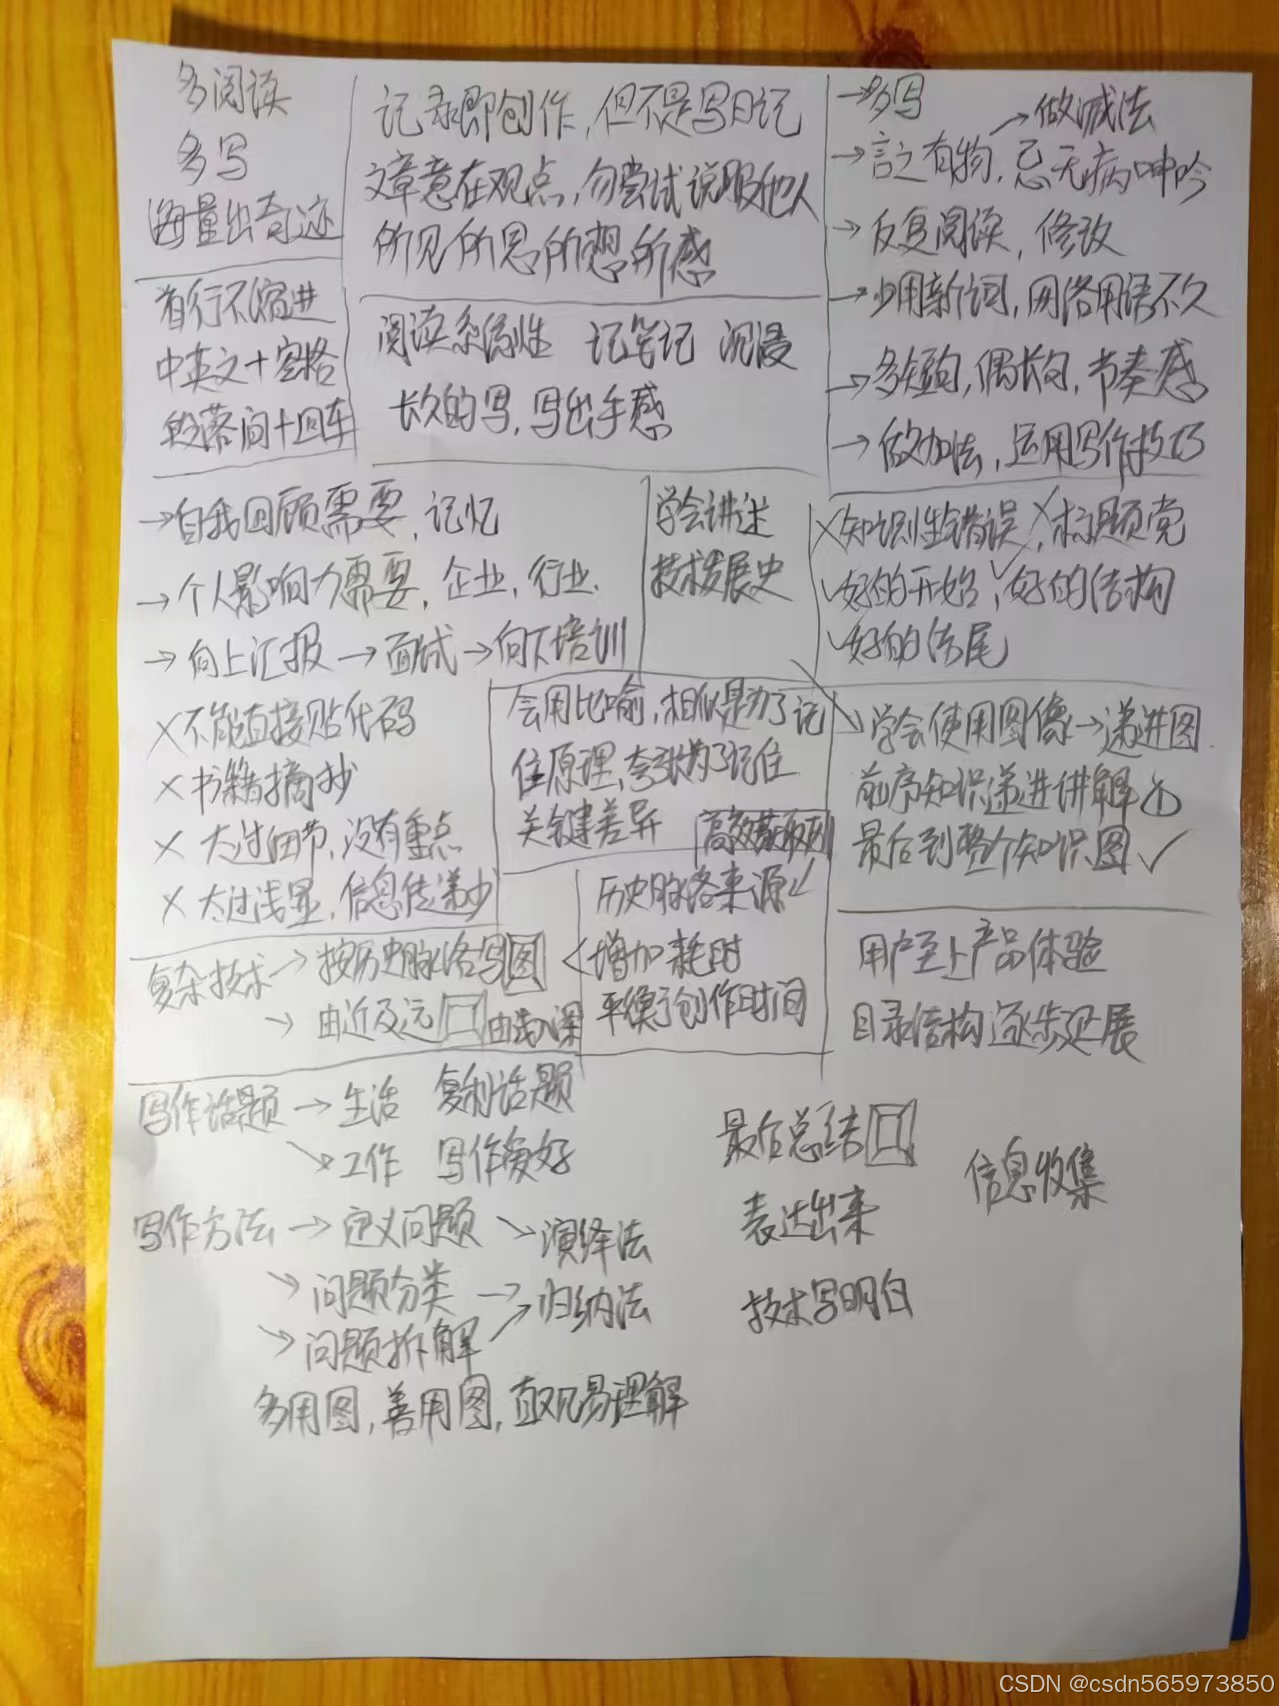 多阅读
多写
海量出奇迹
首行不缩进
中英文+空格
段落间+回车
记录即创作,但不是写日记
文章意在观点,勿尝试说服他人
所见所思所想所感
阅读系统性 记笔记 沉浸
长久的写,写出手感
→多写
→言之有物,忌无病呻吟
→做减法
→反复阅读,修改
→少用新词,网络用语不久
→多短句,偶长句,节奏感
→做加法,运用写作技巧
→自我回顾需要,记忆
→个人影响力需要,企业,行业.
→向上汇报→面试→向下培训
学会讲述
技术发展史
×知识性错误,×标题党
✓好的开始,✓好的结构
✓好的结尾
×不能直接贴代码
×书籍摘抄
×太过细节,没有重点
×太过浅显,信息传递少
会用比喻,相似是为了记
住原理,夸张为了记住
关键差异
高效获取
→学会使用图像→递进图
前序知识递进讲解
最后到整个知识图✓
复杂技术→按历史脉络写图
→由近及远 由浅入深
历史脉络来源✓
增加耗时
平衡了创作时间
用户至上产品体验
目录结构逐步延展
写作话题→生活 复利话题
↘工作 写作爱好
写作方法→定义问题↘演绎法
↘问题分类→归纳法
↘问题拆解↗
多用图,善用图,直观易理解
最后总结
表达出来
技术写明白
信息收集
CSDN @csdn565973850